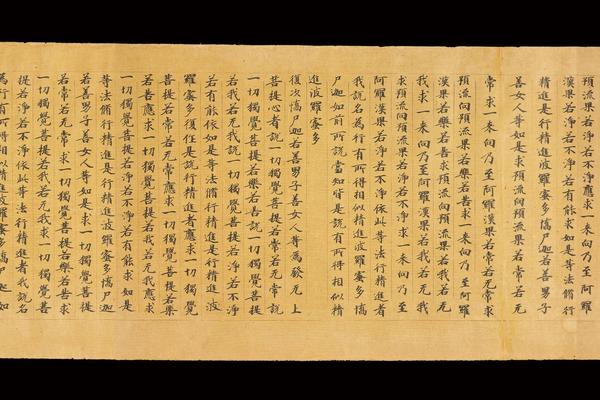 預流果若淨若不淨應求一来向乃至阿羅
漢果若淨若不淨若有能求如是等法脩行
精進是行精進波羅蜜多憍尸迦若善男子
善女人等如是求預流向預流果若常若无
常求一来向乃至阿羅漢果若常若无常求
預流向預流果若樂若苦求一来向乃至阿羅
漢果若樂若苦求預流向預流果若我若无
我求一来向乃至阿羅漢果若我若无我
求預流向預流果若淨若不淨求一来向乃至
阿羅漢果若淨若不淨依此等法行精進者
我說名為行有所得相似精進波羅蜜多憍
尸迦如前所說當知皆是說有所得相似精
進波羅蜜多
復次憍尸迦若善男子善女人等為發无上
菩提心者說一切獨覺菩提若常若无常說
一切獨覺菩提若樂若苦說一切獨覺菩提
若我若无我說一切獨覺菩提若淨若不淨
若有能依如是等法脩行精進是行精進波
羅蜜多復作是說行精進者應求一切獨覺
菩提若常若无常應求一切獨覺菩提若樂
若苦應求一切獨覺菩提若我若无我應求
一切獨覺菩提若淨若不淨若有能求如是
等法脩行精進是行精進波羅蜜多憍尸迦
若善男子善女人等如是求一切獨覺菩提
若常若无常求一切獨覺菩提若樂若苦求
一切獨覺菩提若我若无我求一切獨覺菩
提若淨若不淨依此等法行精進者我說名
為行有所得相似精進波羅蜜多憍尸迦如